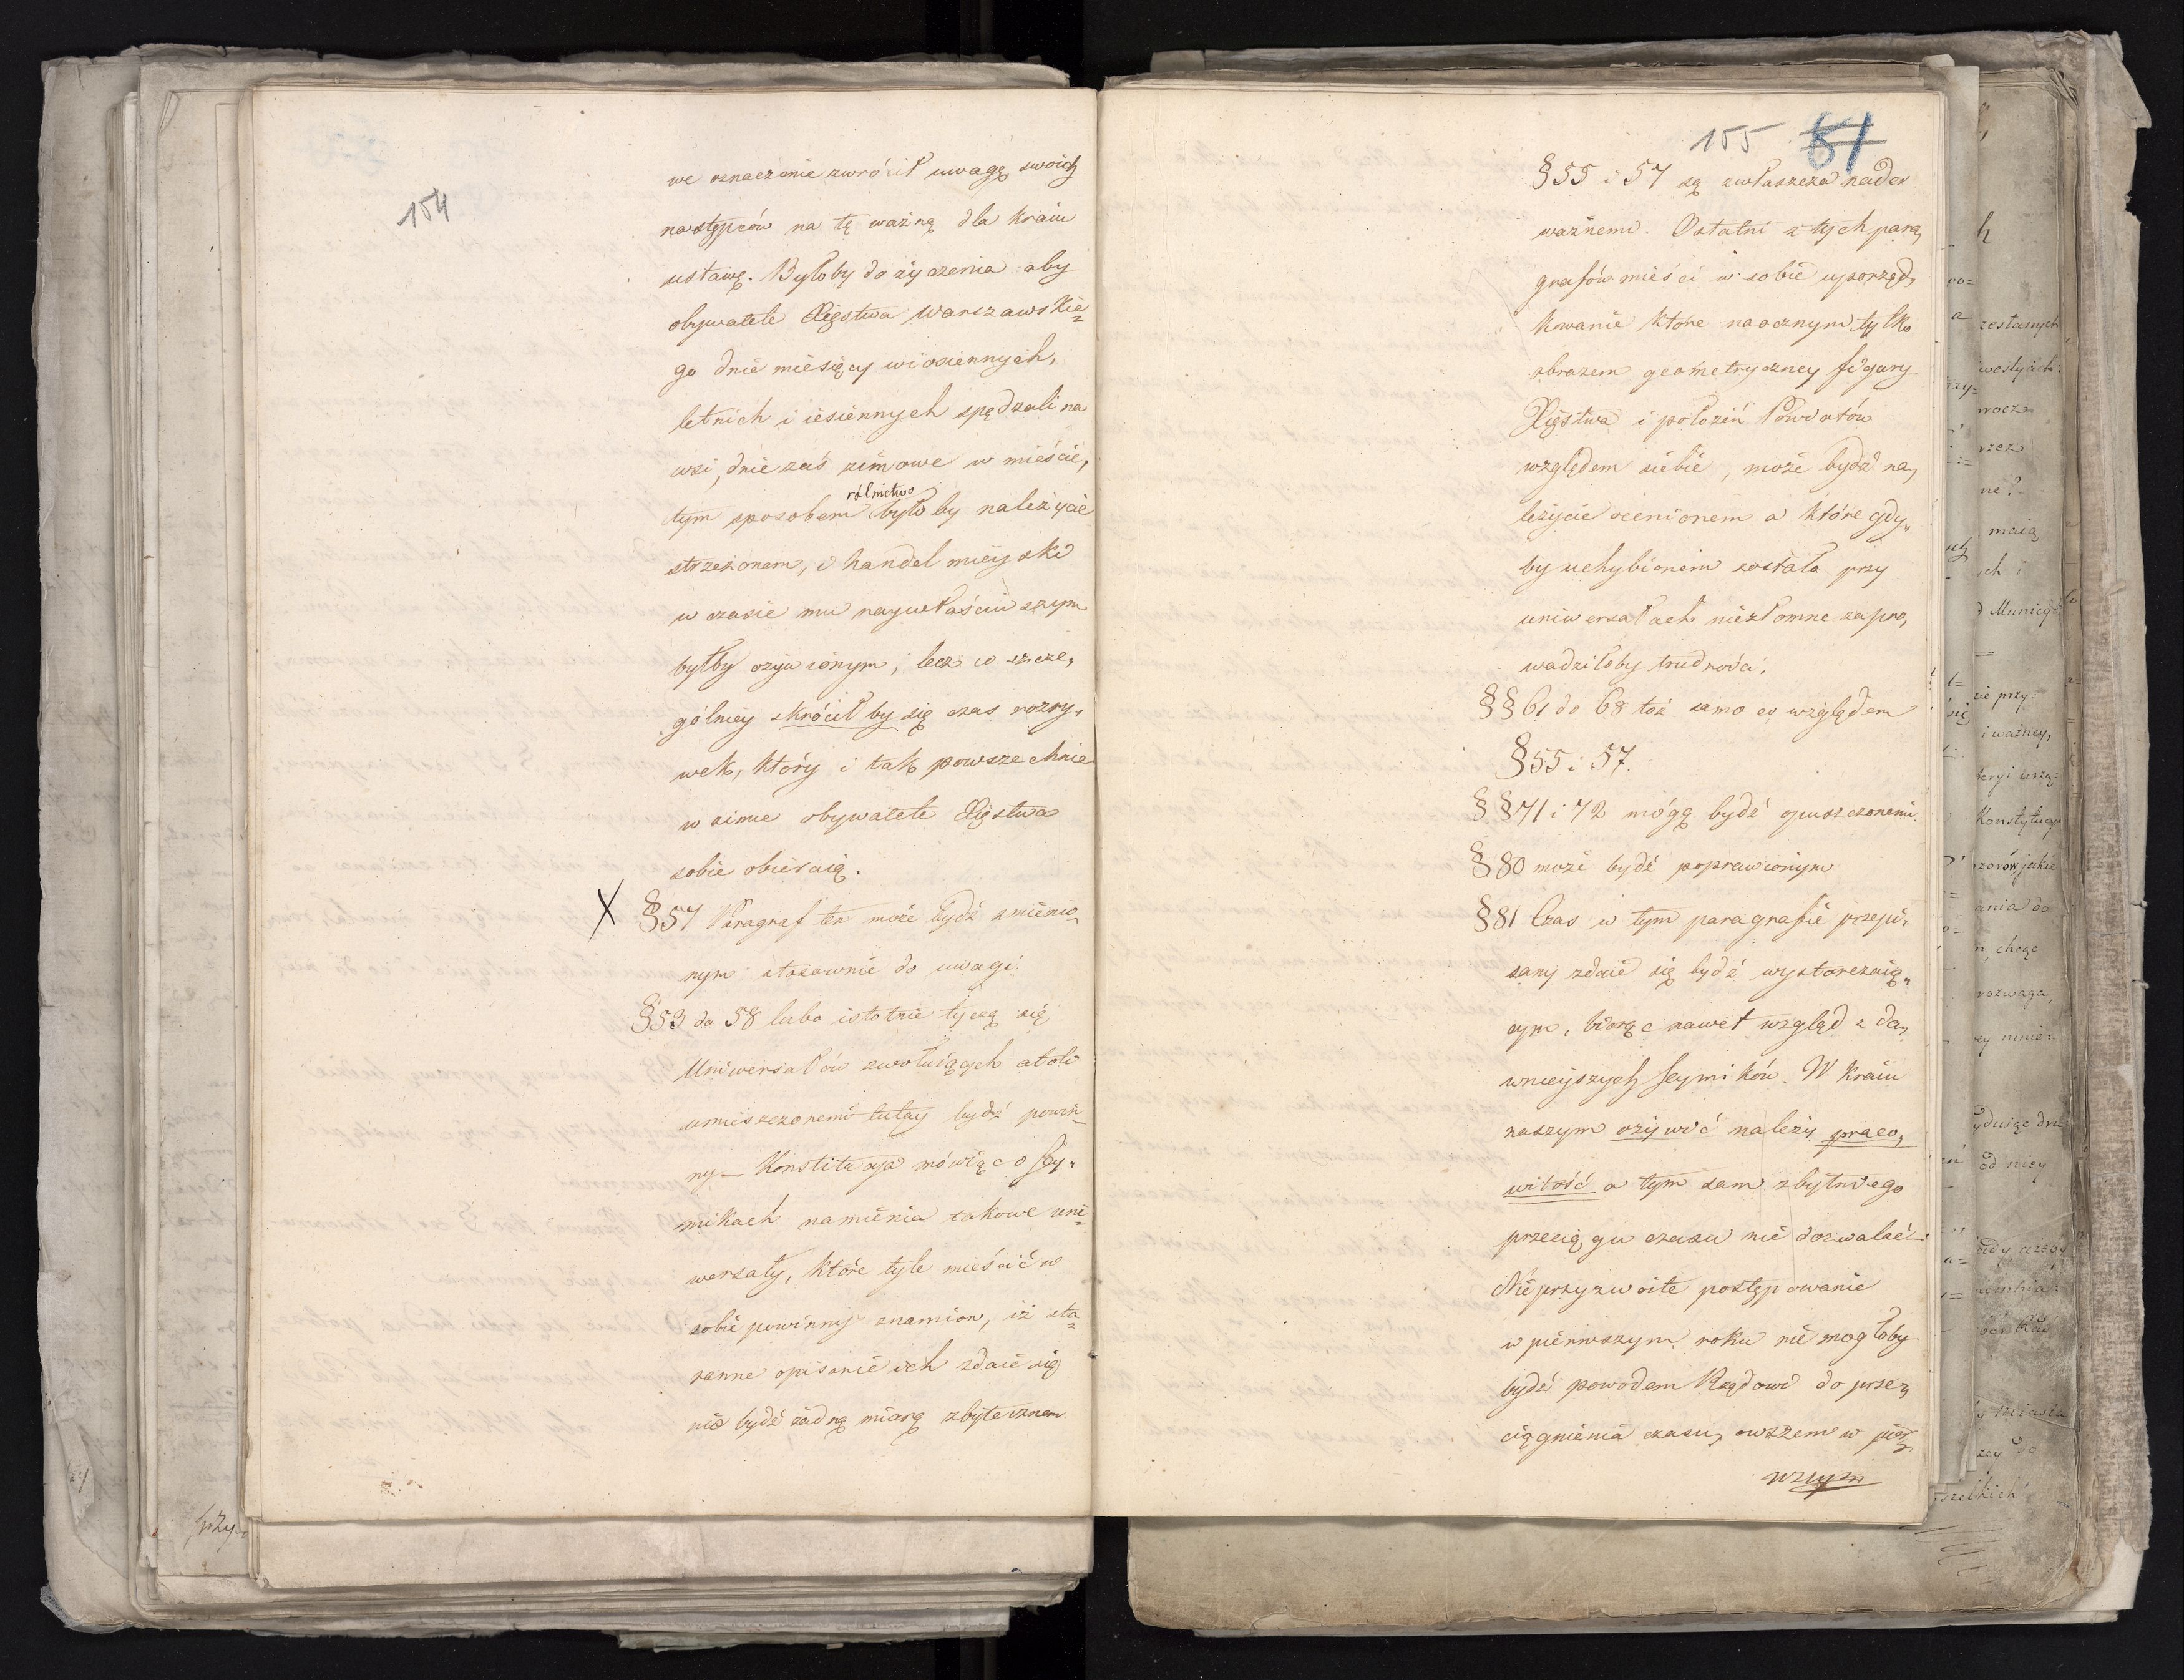 154
we oznaczenie zwrócił uwagę swoich
następców na tę ważną dla kraiu
ustawę. Byłoby do życzenia aby
obywatele Xięstwa Warszawskie=
go dnie miesięcy wiosiennych,
letnich i iesiennych spędzali na
wsi, dnie zaś zimowe w mieście,
rólnictwo
tym sposobem byłoby należycie
strzeżonem, i handel mieyski
w czasie mu naywłaściwszym
byłby ożywionym, lecz co szcze„
gólniey skrócił by się czas rozry„
wek, który i tak powszechnie
w zimie obywatele Xięstwa
sobie obieraią.
X §57 Paragraf ten może bydź zmienio„
nym stosownie do uwagi.
§53 do 58 lubo istotnie tyczą się
Uniwersałów zwołuiących atoli
umieszczonemi tutay bydź powin„
ny — Konstitucya mówiąc o Sey„
mikach namienia takowe uni=
wersały, które tyle mieścić w
sobie powinny znamion, iż sta=
ranne opisanie ich zdaie się
nie bydź żadną miarą zbytecznem
155 61
§55 i 57 są zwłaszcza nader
ważnemi. Ostatni z tych para„
grafów mieści w sobie uporząd„
kowanie które naocznym tylko
obrazem geometryczney figury
Xięstwa i położeń Powiatów
względem siebie, może bydź na„
leżycie ocenionem a które gdy„
by uchybionem zostało przy
uniwersałach niezłomne zapro„
wadziłoby trudności.
§§ 61 do 68 toż samo co względem
§55 i 57.
§§71 i 72 mógą bydź opuszczonemi.
§80 może bydź poprawionym
§81 Czas w tym paragrafie przepi„
sany zdaie się bydź wystarczaią„
cym, biorąc nawet wzgląd z da„
wnieyszych Seymików. W kraiu
naszym ożywić należy praco„
witość a tym sam zbytniego
przeciągu czasu nie dozwalać —
Nieprzyzwoite postępowanie
w pierwszym roku nie mogłoby
bydź powodem Rządowi do prze„
ciągnienia czasu, owszem w pier„
wszym